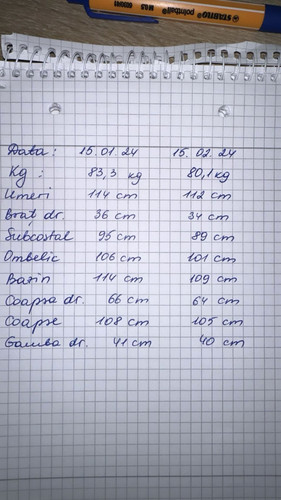 STABILO point
Data: 15.01.24 15.02.24
Kg: 83,3 kg 80,1 kg
Umeri 114 cm 112 cm
Braț dr. 36 cm 34 cm
Subcostal 95 cm 89 cm
Ombelic 106 cm 101 cm
Bazin 114 cm 109 cm
Coapsa dr. 66 cm 64 cm
Coapse 108 cm 105 cm
Gamba dr. 41 cm 40 cm